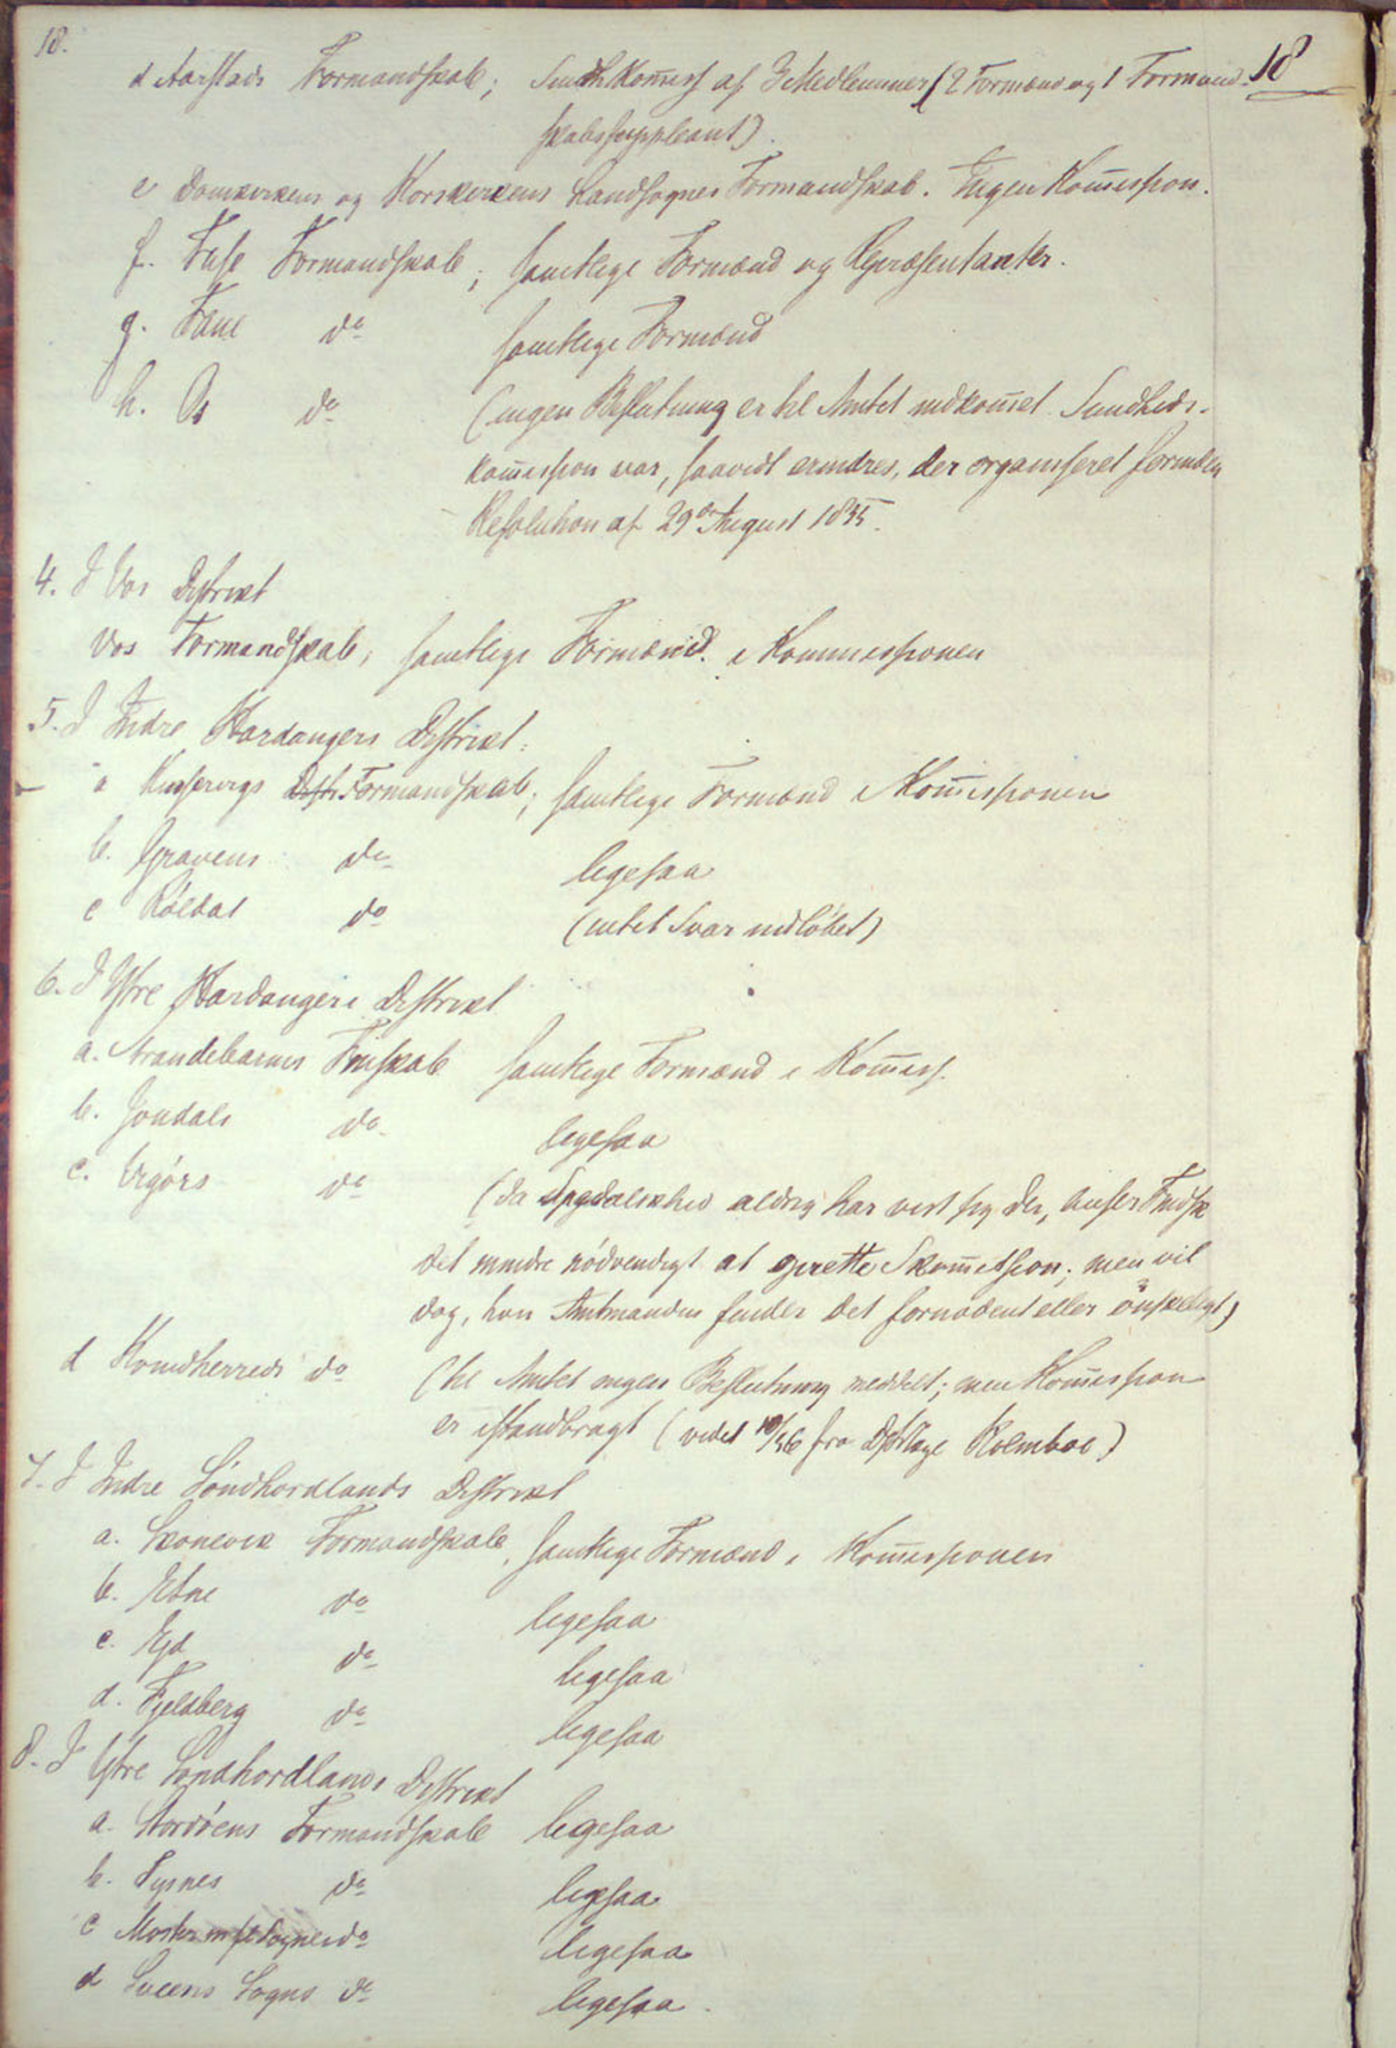 18.
18
d Aarstads Formandskab; Sundhkom̄iss af 3 Medlemmer (2 Formænd og 1 Formand-
skabssuppleant).
e Domkirkens og Korskirkens Landsognes Formandskab. Ingen Kom̄ission.
f. Fuse Formandskab; samtlige Formænd og Repræsentanter.
g. Fane do samtlige Formænd
h. Os do (ingen Beslutning er til Amtet indkom̄et. Sundheds-
kom̄ission var, saavidt erindres, der organiseret formedelst
Resolution af 29de August 1835.
4. I Vos Distrikt
Vos Formandskab, samtlige Formænd i Kommissionen
5. I Indre Hardangers Distrikt:
a Kinservigs Distr. Formandskab; samtlige Formænd i Kom̄issionen
b. Gravens do ligesaa
c Röldal do (intet Svar indløbet)
6. I Ytre Hardangers Distrikt
a. Strandebarms Fmskab samtlige Formænd i Kom̄iss.
b. Jondals do ligesaa
c. Vigörs do (da Spedalskhed aldrig har vist sig der, anser Fmdsk
det mindre nödvendigt at oprette Skom̄ission; men vil
dog, hvis Amtmanden finder det fornødent eller önskeligt)
d Kvindherreds do (til Amtet ingen Beslutning meddelt; men Kom̄ission
er istandbragt (vidst 10/56 fra Dstrlæge Kolmboe)
7. I Indre Söndhordlands Distrikt
a. Skonevik Formandskab, samtlige Formænd i Kom̄issionen
b. Etne do ligesaa
c. Eid do ligesaa
d. Fjeldberg do ligesaa
8. I Ytre Söndhordlands Distrikt
a. Stordöens Formandskab ligesaa
b. Tysnes do ligesaa
c Moster m fl Sognes do ligesaa
d Sveens Sogns do ligesaa.